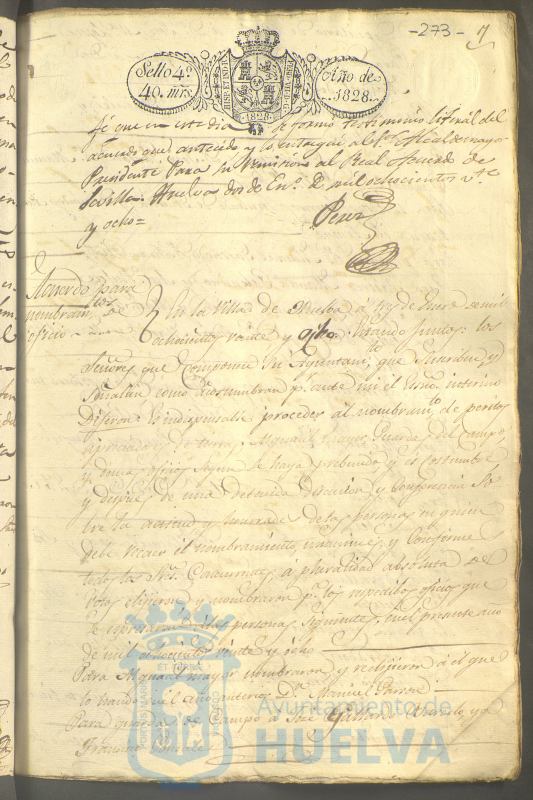 -273-
Sello 4º
40. mrs.
HISP. ET IND. R
1828
Año de
1828.
fé que en este dia se formó testimonio literal del
acuerdo que antecede y lo entregué al Sr. Alcalde mayor
Presidente para su remision al Real Acuerdo de
Sevilla. Huelva dos de Enº. de mil ochocientos vte.
y ocho=
Perez
Acuerdo para
nombramtos. de
oficios
En la Villa de Huelva á de Enero de mil
ochocientos veinte y ocho. Estando juntos los
Señores que componen su Ayuntamto. que suscriben y
señalan como acostumbran pr. ante mi el Esno. interino
Dijeron: Es indispensable proceder al nombramto. de peritos
apreciadores de tierra, Alguacil mayor, Guarda del Campo,
y demas oficios segun se haya prebenido y es costumbre
y despues de una detenida discusion y conferencia so-
bre la actitud y honradez de las personas en quien
debe recaer el nombramiento, unanimes y conformes
todos los Sres. Concurrentes, á pluralidad absoluta de
votos eligieron y nombraron pa. los repetidos oficios que
se espresaran á las personas siguientes, en el presente año
de mil ochocientos veinte y ocho
Para Alguacil mayor nombraron y reeligieron á el que
lo ha sido en el año anterior Dn. Manuel
Para guarda de Campo á José Gallardo y a
Francisco
ET TERRAE
PORTUS MARIS
CUSTODIA
Ayuntamiento de
HUELVA